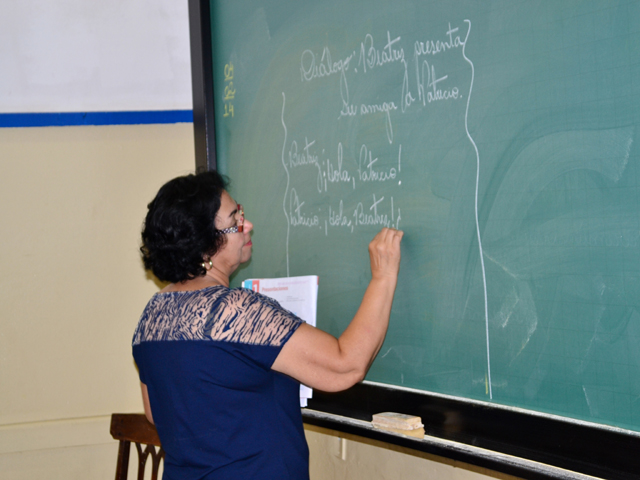 Diálogo: Beatriz presenta
su amiga a Patricio.
Beatriz: ¡Hola, Patricio!
Patricio: ¡Hola, Beatriz! ¿
1